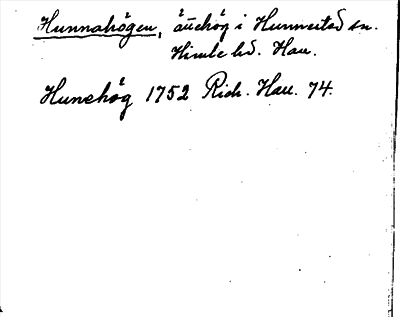 Hunnahögen, ättehög i Hunnestad sn.
Himle hd. Hall.
Hunehög 1752 Rich. Hall. 74.